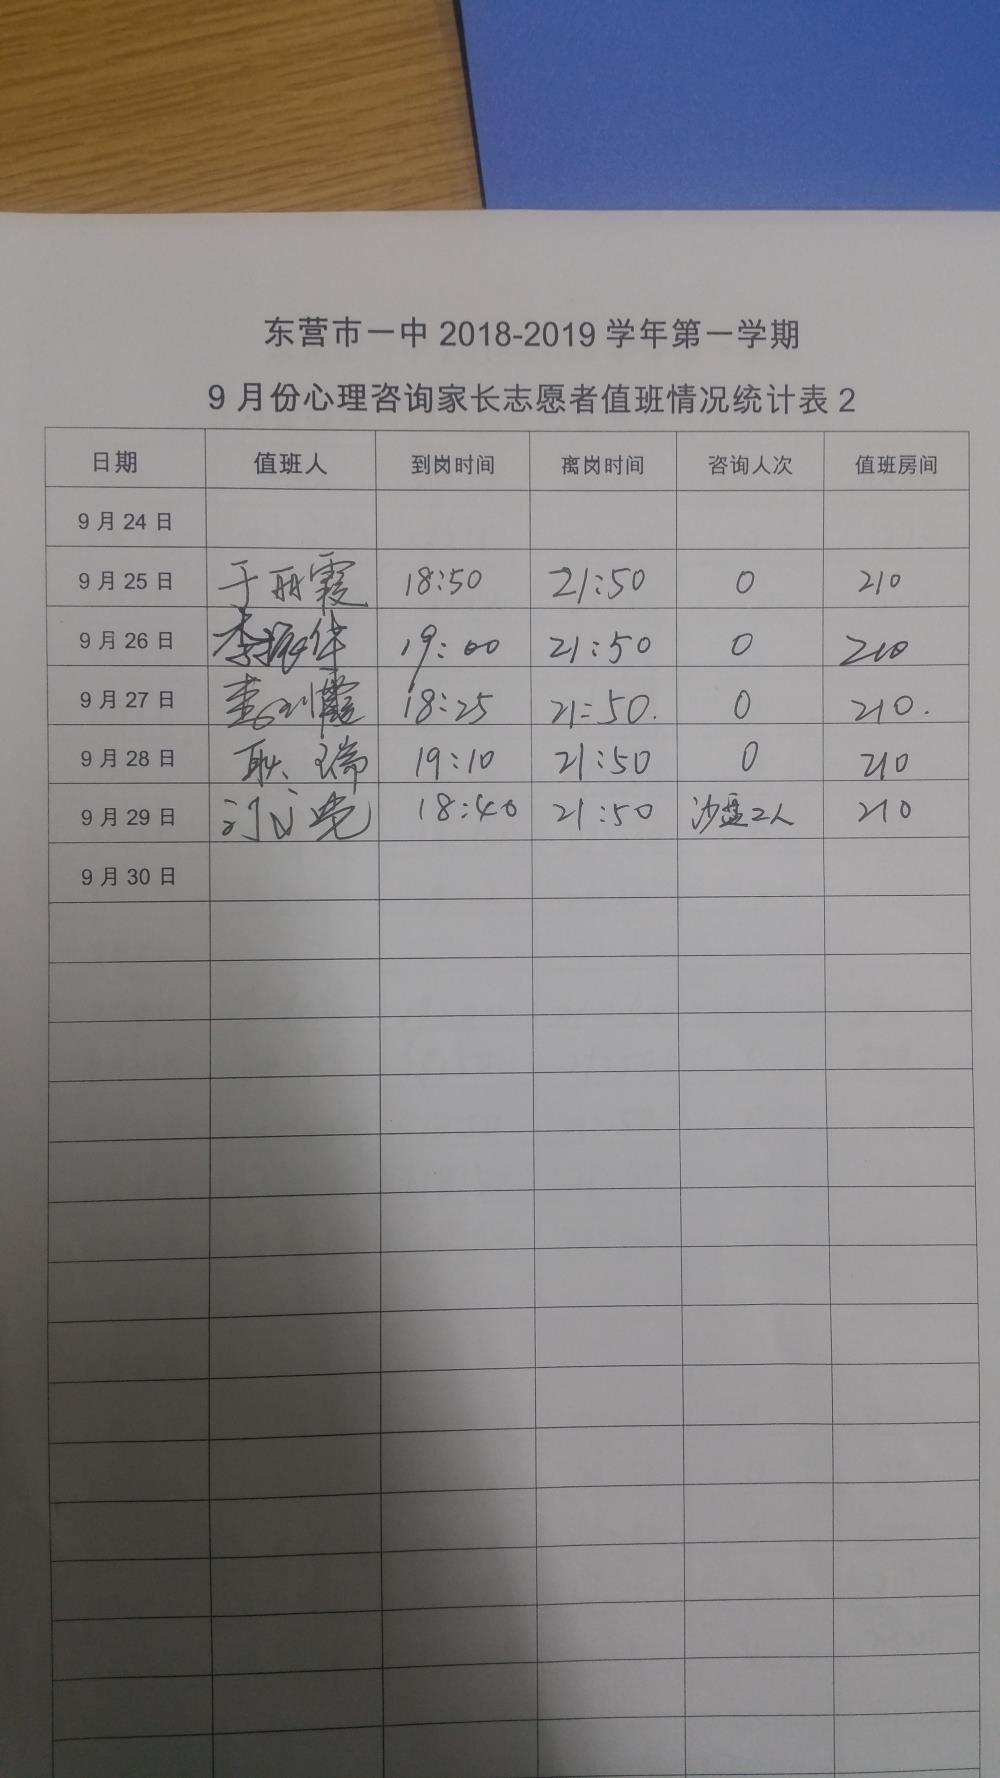 东营市一中 2018-2019 学年第一学期
9 月份心理咨询家长志愿者值班情况统计表 2
日期 值班人 到岗时间 离岗时间 咨询人次 值班房间
9 月 24 日
9 月 25 日 于丽霞 18:50 21:50 0 210
9 月 26 日 李振华 19:00 21:50 0 210
9 月 27 日 18:25 21:50. 0 210.
9 月 28 日 耿瑞 19:10 21:50 0 210
9 月 29 日 18:40 21:50 沙盘2人 210
9 月 30 日